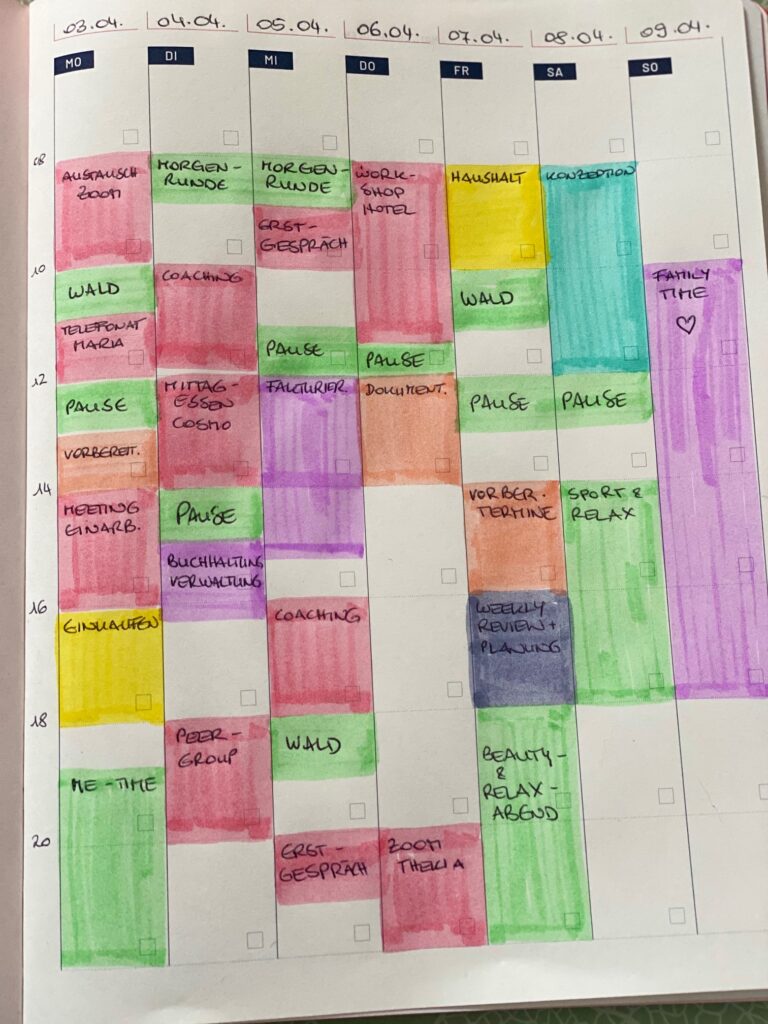 03.04. 04.04. 05.04. 06.04. 07.04. 08.04. 09.04.
MO DI MI DO FR SA SO
08
10
12
14
16
18
20
AUSTAUSCH
ZOOM
WALD
TELEFONAT
MARIA
PAUSE
VORBEREIT.
MEETING
EINARB.
EINKAUFEN
ME-TIME
MORGEN-
RUNDE
COACHING
MITTAG-
ESSEN
COSMO
PAUSE
BUCHHALTUNG
VERWALTUNG
PEER-
GROUP
MORGEN-
RUNDE
ERST-
GESPRÄCH
PAUSE
FAKTURIER.
COACHING
WALD
ERST-
GESPRÄCH
WORK-
SHOP
HOTEL
PAUSE
DOKUMENT.
ZOOM
THEKLA
HAUSHALT
WALD
PAUSE
VORBER.
TERMINE
WEEKLY
REVIEW +
PLANUNG
BEAUTY-
&
RELAX-
ABEND
KONZEPTION
PAUSE
SPORT &
RELAX
FAMILY
TIME
♡